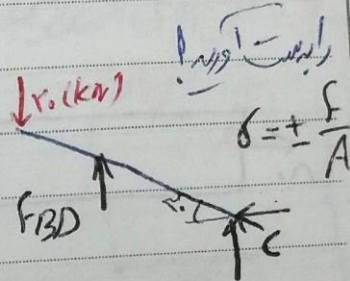 را بدست آورید!
۲۰(kN)
σ = ± F/A
F_BD
C